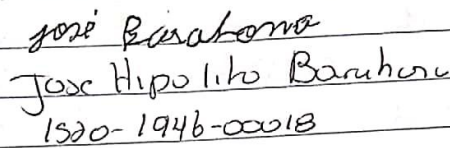 José Barahona
Jose Hipolito Barahona
1520-1946-00018